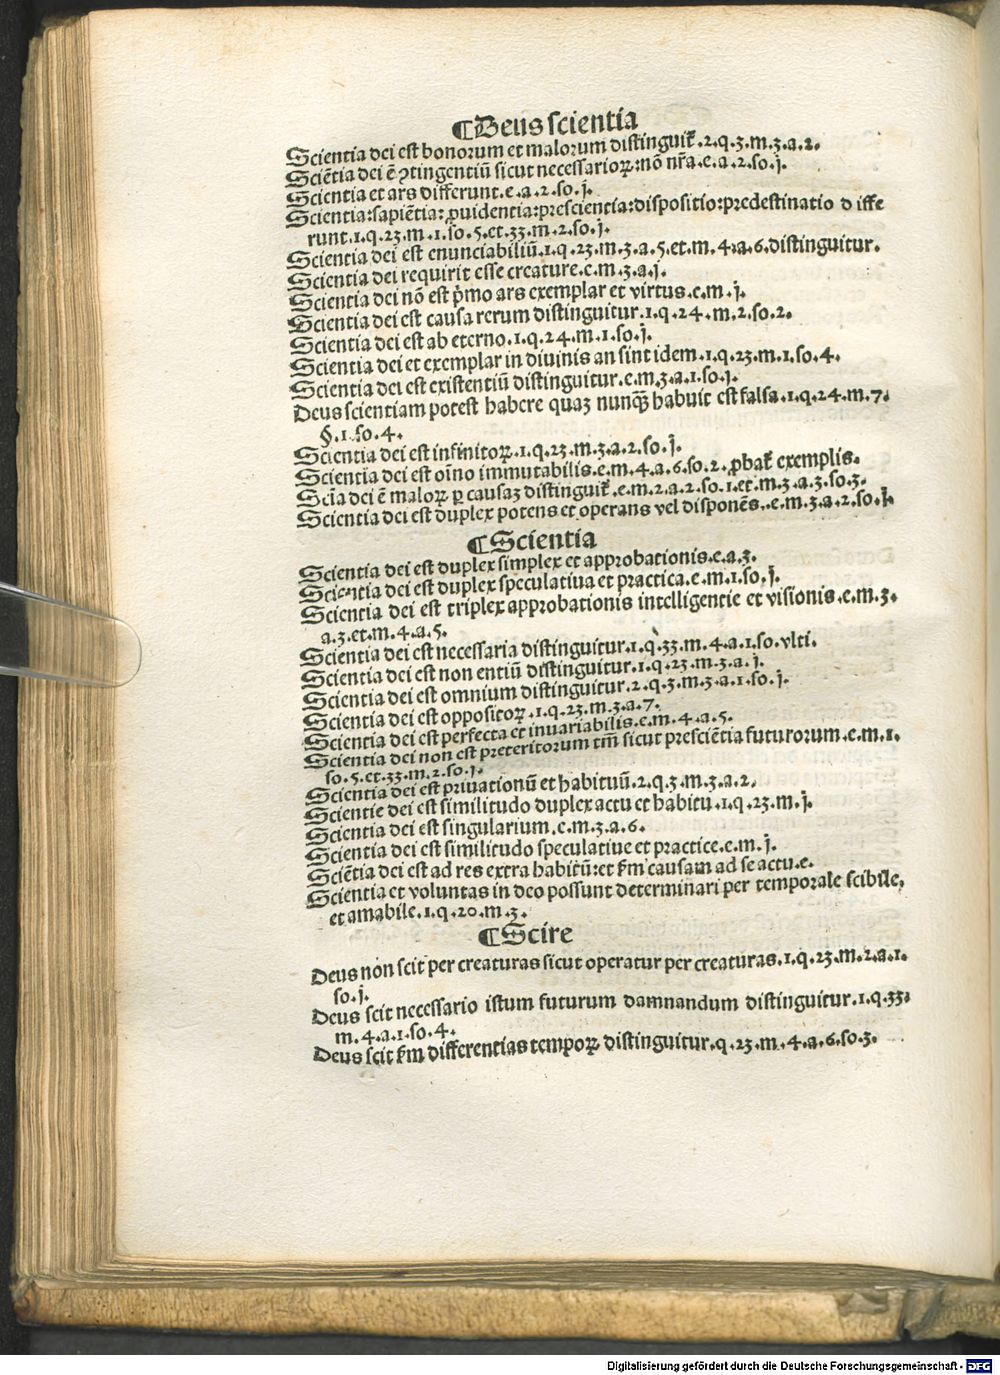 ¶Deus scientia
Scientia dei est bonorum et malorum distinguit᷑.2.q.3.m.3.a.2.
Sciẽtia dei ẽ ꝯtingentiũ sicut necessarioꝝ:nõ nr̃a.e.a.2.so.j.
Scientia et ars differunt.e.a.2.so.j.
Scientia:sapiẽtia:ꝓuidentia:prescientia:dispositio:predestinatio diffe
runt.1.q.23.m.1.so.5.et.33.m.2.so.j.
Scientia dei est enunciabiliũ.1.q.23.m.3.a.5.et.m.4.a.6.distinguitur.
Scientia dei requirit esse creature.e.m.3.a.j.
Scientia dei nõ est p̃mo ars exemplar et virtus.e.m.j.
Scientia dei est causa rerum distinguitur.1.q.24.m.2.so.2.
Scientia dei est ab eterno.1.q.24.m.1.so.j.
Scientia dei et exemplar in diuinis an sint idem.1.q.23.m.1.so.4.
Scientia dei est existentiũ distinguitur.e.m.3.a.1.so.j.
Deus scientiam potest habere quaʒ nunꝗ̃ habuit est falsa.1.q.24.m.7.
§.1.so.4.
Scientia dei est infinitoꝝ.1.q.23.m.3.a.2.so.j.
Scientia dei est oĩno immutabilis.e.m.4.a.6.so.2.ꝓbat᷑ exemplis.
Scĩa dei ẽ maloꝝ ꝑ causaʒ distinguit᷑.e.m.2.a.2.so.1.et.m.3.a.3.so.3.
Scientia dei est duplex potens et operans vel disponẽs..e.m.3.a.2.so.j.
¶Scientia
Scientia dei est duplex simplex et approbationis.e.a.3.
Scientia dei est duplex speculatiua et practica.e.m.1.so.j.
Scientia dei est triplex approbationis intelligentie et visionis.e.m.3.
a.3.et.m.4.a.5.
Scientia dei est necessaria distinguitur.1.q.33.m.4.a.1.so.vlti.
Scientia dei est non entiũ distinguitur.1.q.23.m.3.a.j.
Scientia dei est omnium distinguitur.2.q.3.m.3.a.1.so.j.
Scientia dei est oppositoꝝ.1.q.23.m.3.a.7.
Scientia dei est perfecta et inuariabilis.e.m.4.a.5.
Scientia dei non est preteritorum tm̃ sicut presciẽtia futurorum.e.m.1.
so.5.et.33.m.2.so.j.
Scientia dei est priuationũ et habituũ.2.q.3.m.3.a.2.
Scientie dei est similitudo duplex actu et habitu.1.q.23.m.j.
Scientia dei est singularium.e.m.3.a.6.
Scientia dei est similitudo speculatiue et practice.e.m.j.
Sciẽtia dei est ad res extra habitũ:et ẜm causam ad se actu.e.
Scientia et voluntas in deo possunt determinari per temporale scibile,
et amabile.1.q.20.m.3.
¶Scire
Deus non scit per creaturas sicut operatur per creaturas.1.q.23.m.2.a.1.
so.j.
Deus scit necessario istum futurum damnandum distinguitur.1.q.33.
m.4.a.1.so.4.
Deus scit ẜm differentias tempoꝝ distinguitur.q.23.m.4.a.6.so.3.
Digitalisierung gefördert durch die Deutsche Forschungsgemeinschaft - DFG